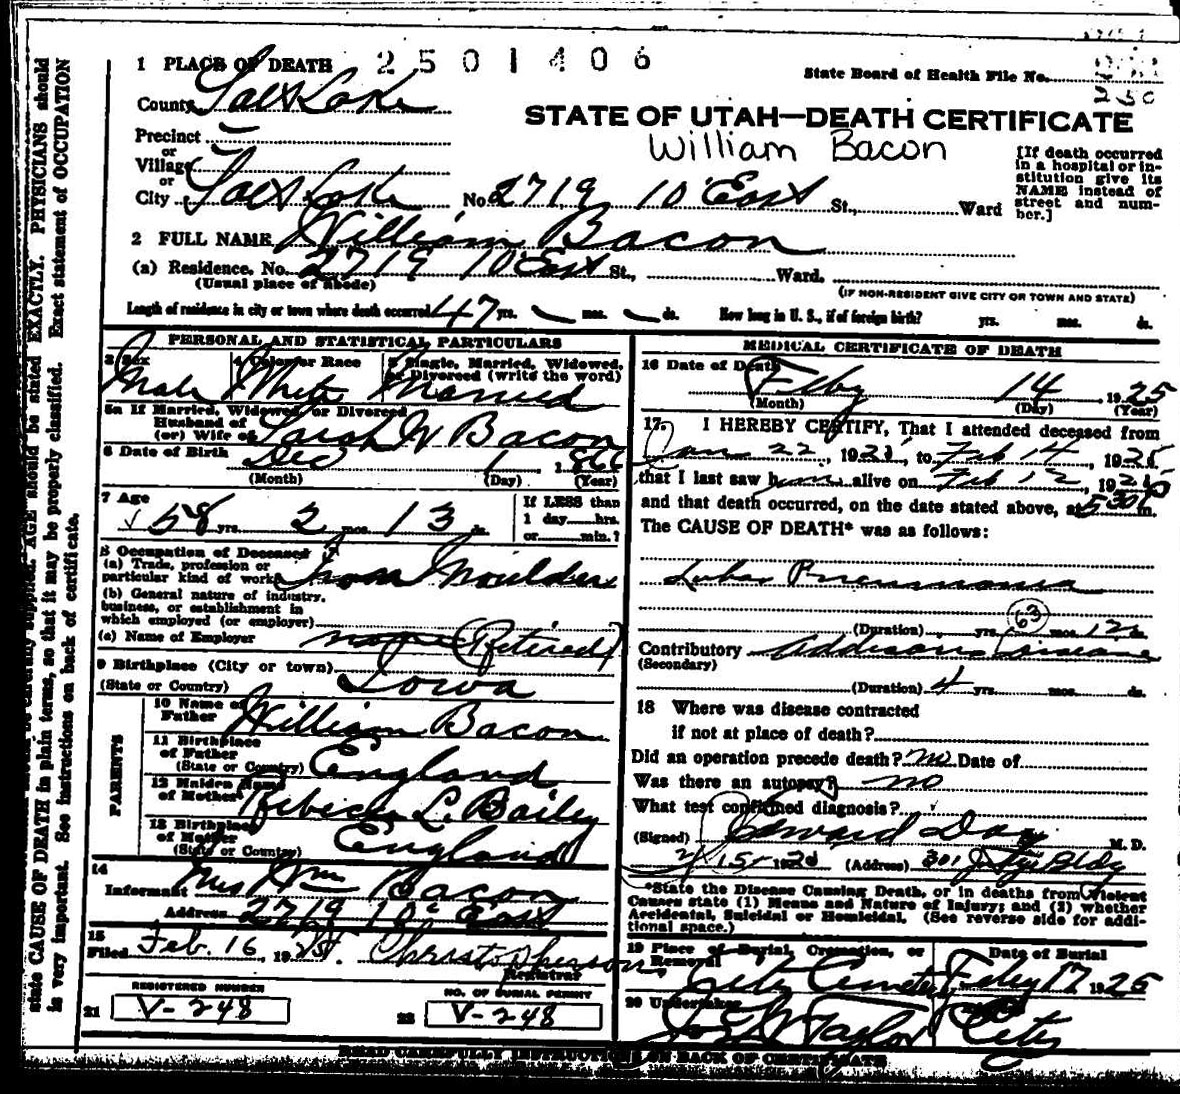 1 PLACE OF DEATH 2501406
State Board of Health File No.
250
County Salt Lake
STATE OF UTAH—DEATH CERTIFICATE
William Bacon
Precinct
or
Village
or
City Salt Lake No. 2719 10" East St., Ward
[If death occurred
in a hospital or in-
stitution give its
NAME instead of
street and num-
ber.]
2 FULL NAME William Bacon
(a) Residence. No. 2719 10" East St., Ward.
(Usual place of abode)
(IF NON-RESIDENT GIVE CITY OR TOWN AND STATE)
Length of residence in city or town where death occurred 47 yrs. — mos. — ds. How long in U. S., if of foreign birth? yrs. mos. ds.
PERSONAL AND STATISTICAL PARTICULARS
3 Sex 4 Color or Race 5 Single, Married, Widowed,
or Divorced (write the word)
Male White Married
5a If Married, Widowed or Divorced
Husband of
(or) Wife of Sarah W Bacon
6 Date of Birth Dec 1 1866
(Month) (Day) (Year)
7 Age
58 yrs. 2 mos. 13 ds.
If LESS than
1 day hrs.
or min.?
8 Occupation of Deceased
(a) Trade, profession or
particular kind of work Iron Moulder
(b) General nature of industry,
business, or establishment in
which employed (or employer)
(c) Name of Employer none (Retired)
9 Birthplace (City or town)
(State or Country) Iowa
PARENTS
10 Name of
Father William Bacon
11 Birthplace
of Father
(State or Country) England
12 Maiden Name
of Mother Rebecca L. Bailey
13 Birthplace
of Mother
(State or Country) England
14
Informant Mrs Wm Bacon
Address 2719 10" East
15
Filed Feb. 16, 1925. Christopherson
Registrar
REGISTERED NUMBER
21 V-248
NO. OF BURIAL PERMIT
22 V-248
MEDICAL CERTIFICATE OF DEATH
16 Date of Death Feby 14, 1925
(Month) (Day) (Year)
17. I HEREBY CERTIFY, That I attended deceased from
Jan 22, 1921, to Feb 14, 1925
that I last saw him alive on Feb 12, 1925
and that death occurred, on the date stated above, at 5 30 m.
The CAUSE OF DEATH* was as follows:
Lobar Pneumonia
63
(Duration) yrs. mos. 12 ds.
Contributory Addisons Disease
(Secondary)
(Duration) 4 yrs. mos. ds.
18 Where was disease contracted
if not at place of death?
Did an operation precede death? no Date of
Was there an autopsy? no
What test confirmed diagnosis?
(Signed) Edward Day M. D.
2/15, 1925 (Address) 301 Bldg
*State the Disease Causing Death, or in deaths from Violent
Causes state (1) Means and Nature of Injury; and (2) whether
Accidental, Suicidal or Homicidal. (See reverse side for addi-
tional space.)
19 Place of Burial, Cremation, or
Removal
Date of Burial
City Cemetery Feby 17 1925
20 Undertaker
Jos Wm Taylor City
READ CAREFULLY INSTRUCTIONS ON BACK OF CERTIFICATE
AGE should be stated EXACTLY. PHYSICIANS should
state CAUSE OF DEATH in plain terms, so that it may be properly classified. Exact statement of OCCUPATION
is very important. See instructions on back of certificate.